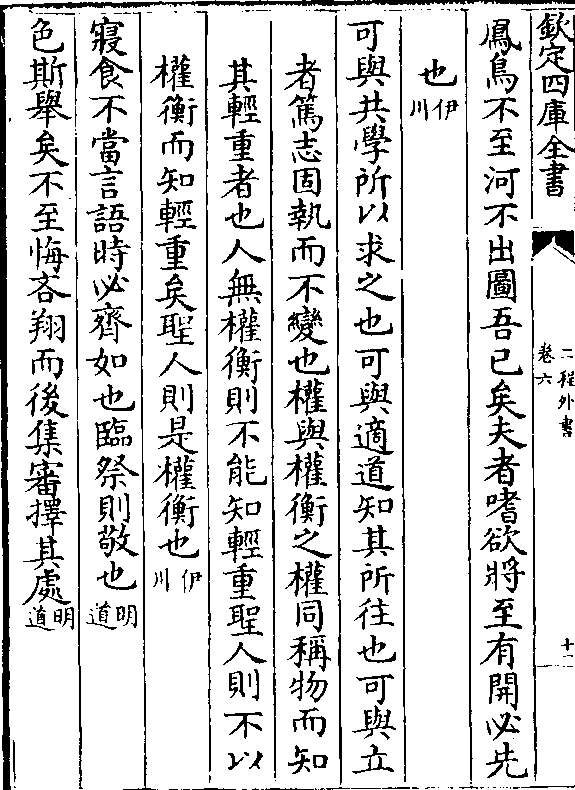 欽定四庫全書
二程外書
卷六
十一
鳳鳥不至河不出圖吾已矣夫者嗜欲將至有開必先
也伊川
可與共學所以求之也可與適道知其所往也可與立
者篤志固執而不變也權與權衡之權同稱物而知
其輕重者也人無權衡則不能知輕重聖人則不以
權衡而知輕重矣聖人則是權衡也伊川
寢食不當言語時必齊如也臨祭則敬也明道
色斯舉矣不至悔吝翔而後集審擇其處明道